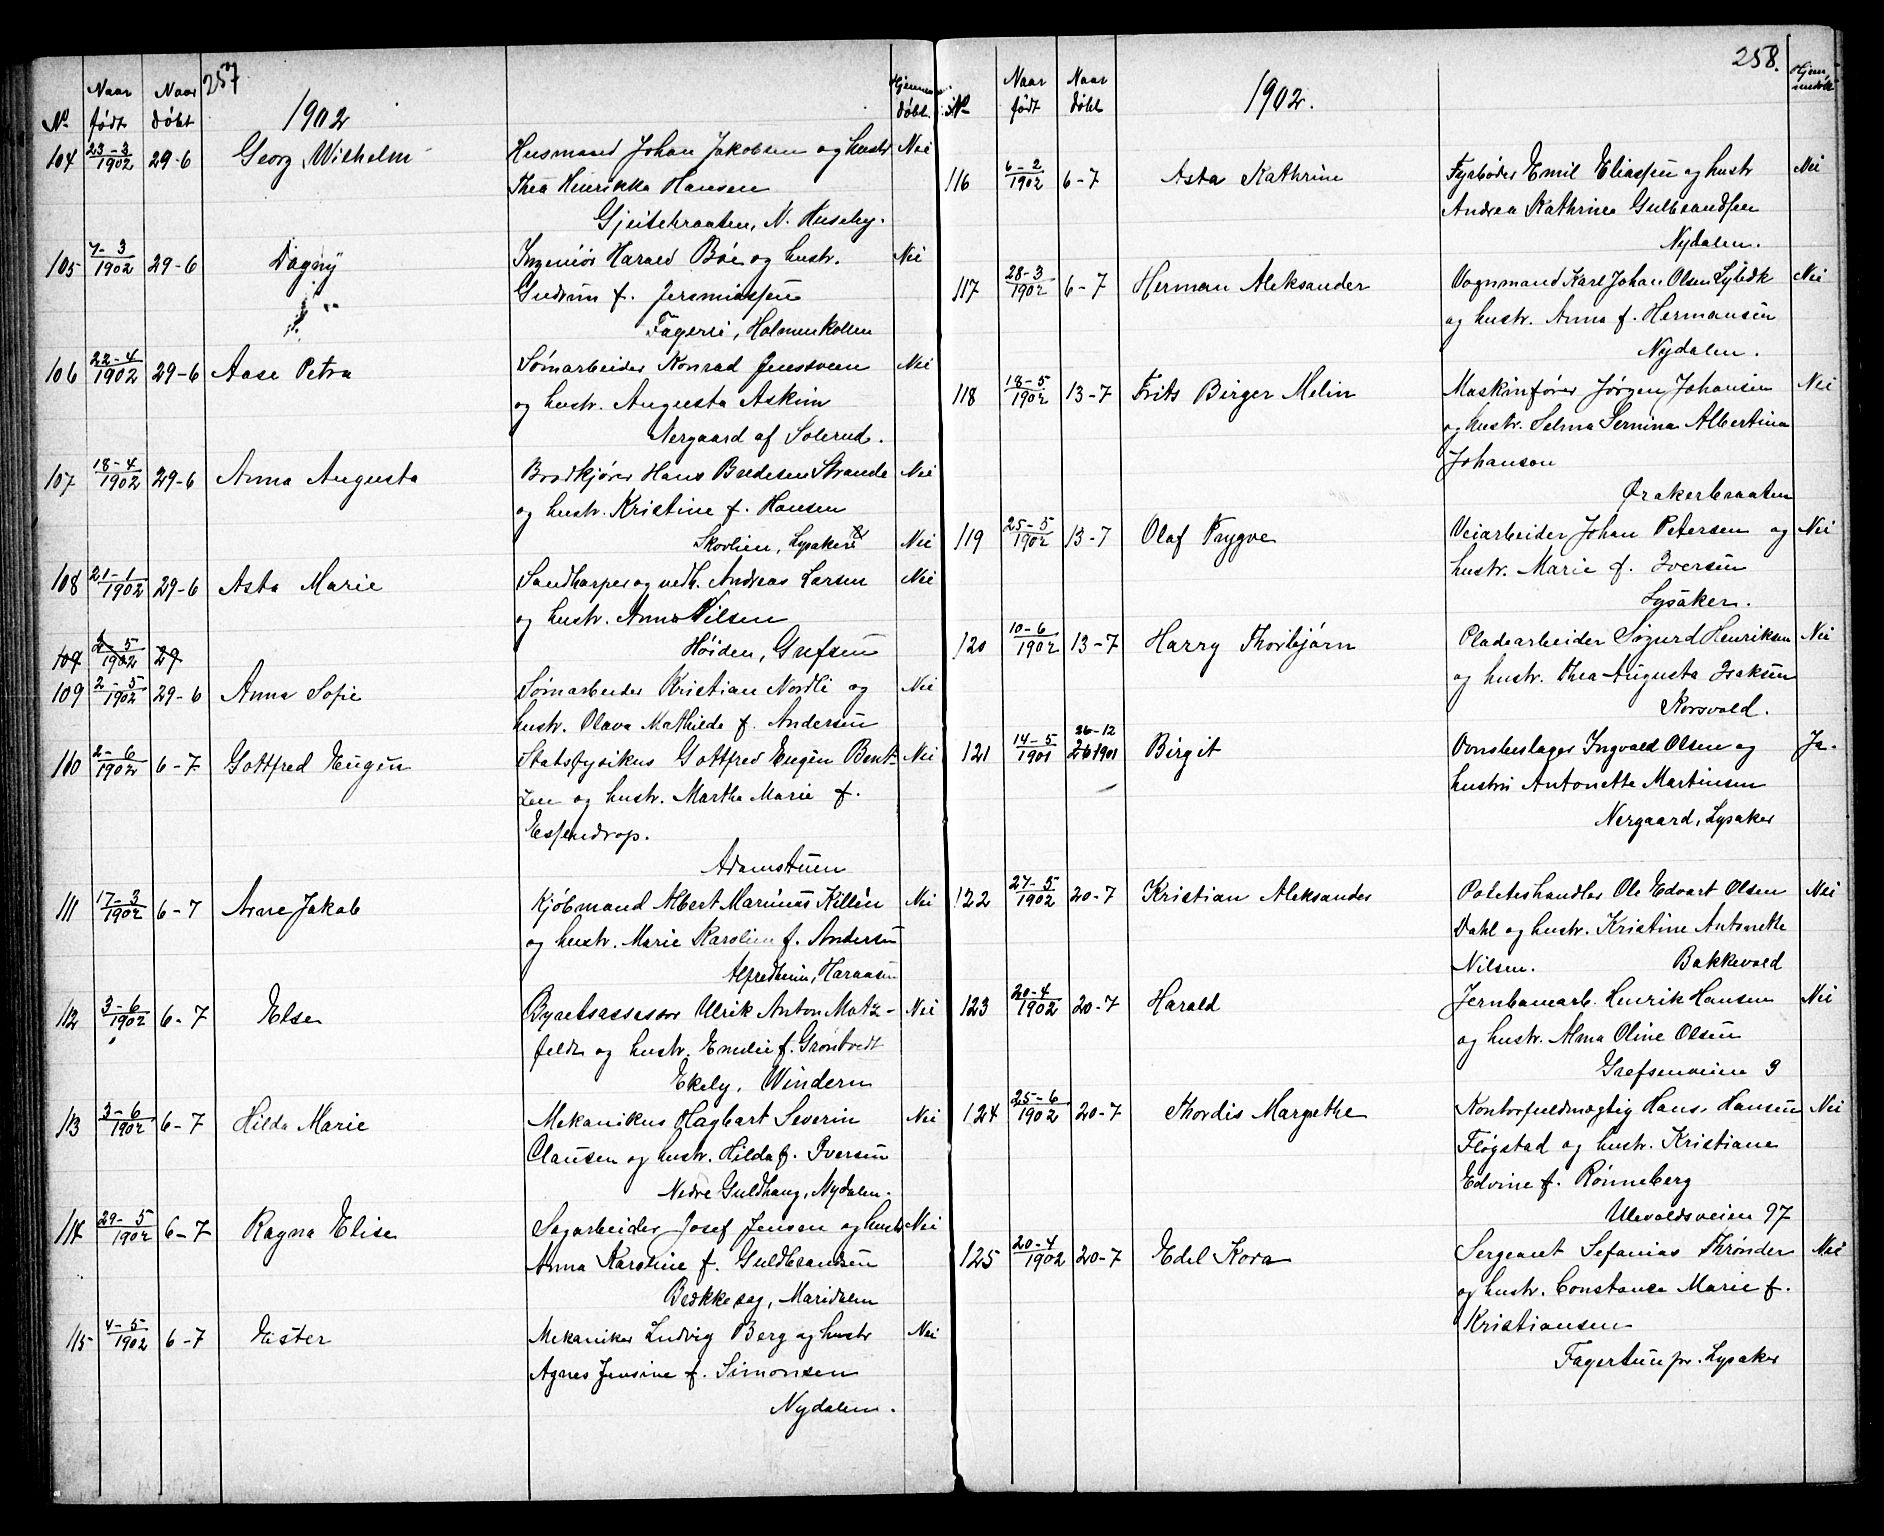 257
No. Naar født Naar døbt 1902 Hjemmedøbt.
104 23-3 1902 29-6 Georg Wilhelm Husmand Johan Jakobsen og hustr Nei
Thea Henrikka Hansen
Gjeitebraaten, N. Huseby.
105 7-3 1902 29-6 Dagny Ingeniör Harald Böe og hustr. Nei
Gudrun f. Jeremiassen
Fagerli, Holmenkollen
106 22-4 1902 29-6 Aase Petra Sömarbeider Konrad Jenssveen Nei
og hustr. Augusta Askim
Nergaard af Solerud.
107 18-4 1902 29-6 Anna Augusta Brødkjører Hans Bredesen Strande Nei
og hustr. Kristine f. Hansen
Skovlien, Lysaker Nei
108 21-1 1902 29-6 Asta Marie Sandharper og vedh. Andreas Larsen Nei
og hustr. Anna Nilsen
Höiden, Grefsen
109 2-5 1902 29
109 2-5 1902 29-6 Anna Sofie Sömarbeider Kristian Nordli og Nei
hustr. Olava Mathilde f. Andersen
110 2-6 1902 6-7 Gottfred Eugen Statsfysikus Gottfred Eugen Bent- Nei
zen og hustr. Martha Marie f.
Essendrop.
Adamstuen
111 17-3 1902 6-7 Arne Jakob Kjöbmand Albert Marinus Killén Nei
og hustr. Marie Karoline f. Andersen
Alfredheim, Haraasen
112 3-6 1902 6-7 Else Byretsassessor Ulrik Anton Motz- Nei
feldt og hustr. Emilie f. Gröntvedt
Ekely, Vindern
113 3-6 1902 6-7 Hilda Marie Mekanikus Hagbart Severin Nei
Clausen og hustr. Hilda f. Iversen
Nedre Guldhaug, Nydalen.
114 29-5 1902 6-7 Ragna Elise Sagarbeider Josef Jensen og hustr Nei
Anna Karoline f. Guldbrandsen
Brekke sag, Maridalen
115 4-5 1902 6-7 Ester Mekaniker Ludvig Berg og hustr Nei
Agnes Jensine f. Simonsen
Nydalen.
258.
No Naar født Naar döbt 1902. Hjemmedöbt
116 6-2 1902 6-7 Asta Kathrine Fyrböder Emil Eliassen og hustr Nei
Andrea Kathrine Gulbrandsen
Nydalen.
117 28-3 1902 6-7 Herman Aleksander Vognmand Karl Johan Olsen Nei
og hustr. Anna f. Hermansen
Nydalen.
118 18-5 1902 13-7 Frits Birger Melin Maskinfører Jørgen Johansen Nei
og hustr. Selma Albertina
Johanson
Ørakerbraaten
119 25-5 1902 13-7 Olaf Trygve Veiarbeider Johan Petersen og Nei
hustr. Marie f. Iversen
Lysaker.
120 10-6 1902 13-7 Harry Thorbjørn Pladearbeider Sigurd Henriksen Nei
og hustr. Thea Augusta Isaksen
Korsvold.
121 14-5 1901 26-12 26 1901 Birgit Ovnsbeslager Ingvald Olsen og Ja.
hustru Antonette Martinsen
Nergaard, Lysaker
122 27-5 1902 20-7 Kristian Aleksander Potetshandler Ole Edvart Olsen Nei
Dahl og hustr. Kristine Antonette
Nilsen. Bakkevold
123 20-4 1902 20-7 Harald Jernbanearb. Henrik Hansen Nei
og hustr. Alma Oline Olsen
Grefsenveien 9
124 25-6 1902 20-7 Thordis Margrethe Kontorfuldmægtig Hans Hansen Nei
Fløgstad og hustr. Kristiane
Edvine f. Rönneberg
Ullevoldsveien 97
125 20-4 1902 20-7 Edel Kora Sergeant Sefanias Thrønder Nei
og hustr. Constance Marie f.
Kristiansen
Fagertun pr. Lysaker